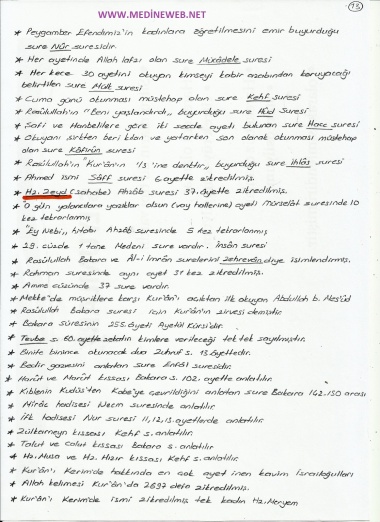 www.MEDİNEWEB.NET
13
* Peygamber Efendimiz'in kadınlara öğretilmesini emir buyurduğu
sure Nûr suresidir.
* Her ayetinde Allah lafzı olan sure Mücâdele suresi
* Her gece 30 ayetini okuyan kimseyi kabir azabından koruyacağı
belirtilen sure Mülk suresi
* Cuma günü okunması müstehap olan sure Kehf suresi
* Rasülullah'ın "Beni yaşlandırdı,, buyurduğu sure Hûd Suresi
* Şafi ve Hanbelilere göre iki secde ayeti bulunan sure Hacc suresi
* Okuyanı şirkten beri kılan ve yatarken son olarak okunması müstehap
olan sure Kâfirûn suresi
* Rasülullah'ın "Kur'ân'ın 1/3 'ine denktir,, buyurduğu sure İhlâs suresi
* Ahmed ismi Sâff suresi 6 ayette zikredilmiş.
* Hz. Zeyd (sahabe) Ahzâb suresi 37. ayette zikredilmiş.
* "O gün yalanlara yazıklar olsun (vay hallerine) ayeti Mürselât suresinde 10
kez tekrarlanmış
* "Ey Nebi,, hitabı Ahzâb suresinde 5 kez tekrarlanmış
* 29. cüzde 1 tane Medeni sure vardır. İnsân suresi
* Rasülullah Bakara ve Âl-i İmrân surelerini zehrevân diye isimlendirmiş.
* Rahman suresinde aynı ayet 31 kez zikredilmiştir.
* Amme cüzünde 37 sure vardır.
* Mekke'de müşriklere karşı Kur'ân'ı açıktan ilk okuyan Abdullah b. Mes'ûd
* Rasülullah Bakara suresi için Kur'ân'ın zirvesi demiştir
* Bakara süresinin 255. ayeti Ayetül Kürsi'dir.
* Tevbe s. 60. ayette zekatın kimlere verileceği tek tek sayılmıştır.
* Binite binince okunacak dua Zuhruf s. 13. ayettedir.
* Bedir gazvesini anlatan sure Enfâl suresidir.
* Harût ve Marût kıssası Bakara s. 102. ayette anlatılır.
* Kıblenin Kudüs'ten Kabe'ye çevrildiğini anlatan sure Bakara 142.150 arası
* Mirâc hadisesi Necm suresinde anlatılır.
* İfk hadisesi Nur suresi 11,12,13. ayetlerde anlatılır.
* Zülkarneyn kıssası Kehf s. anlatılır.
* Talut ve Calut kıssası Bakara s. anlatılır.
* Hz. Musa ve Hz. Hızır kıssası Kehf s. anlatılır.
* Kur'ân'ı Kerim'de hakkında en çok ayet inen kavim İsrailoğulları
* Allah kelimesi Kur'ân'da 2697 defa zikredilmiş.
* Kur'ân'ı Kerim'de ismi zikredilmiş tek kadın Hz. Meryem